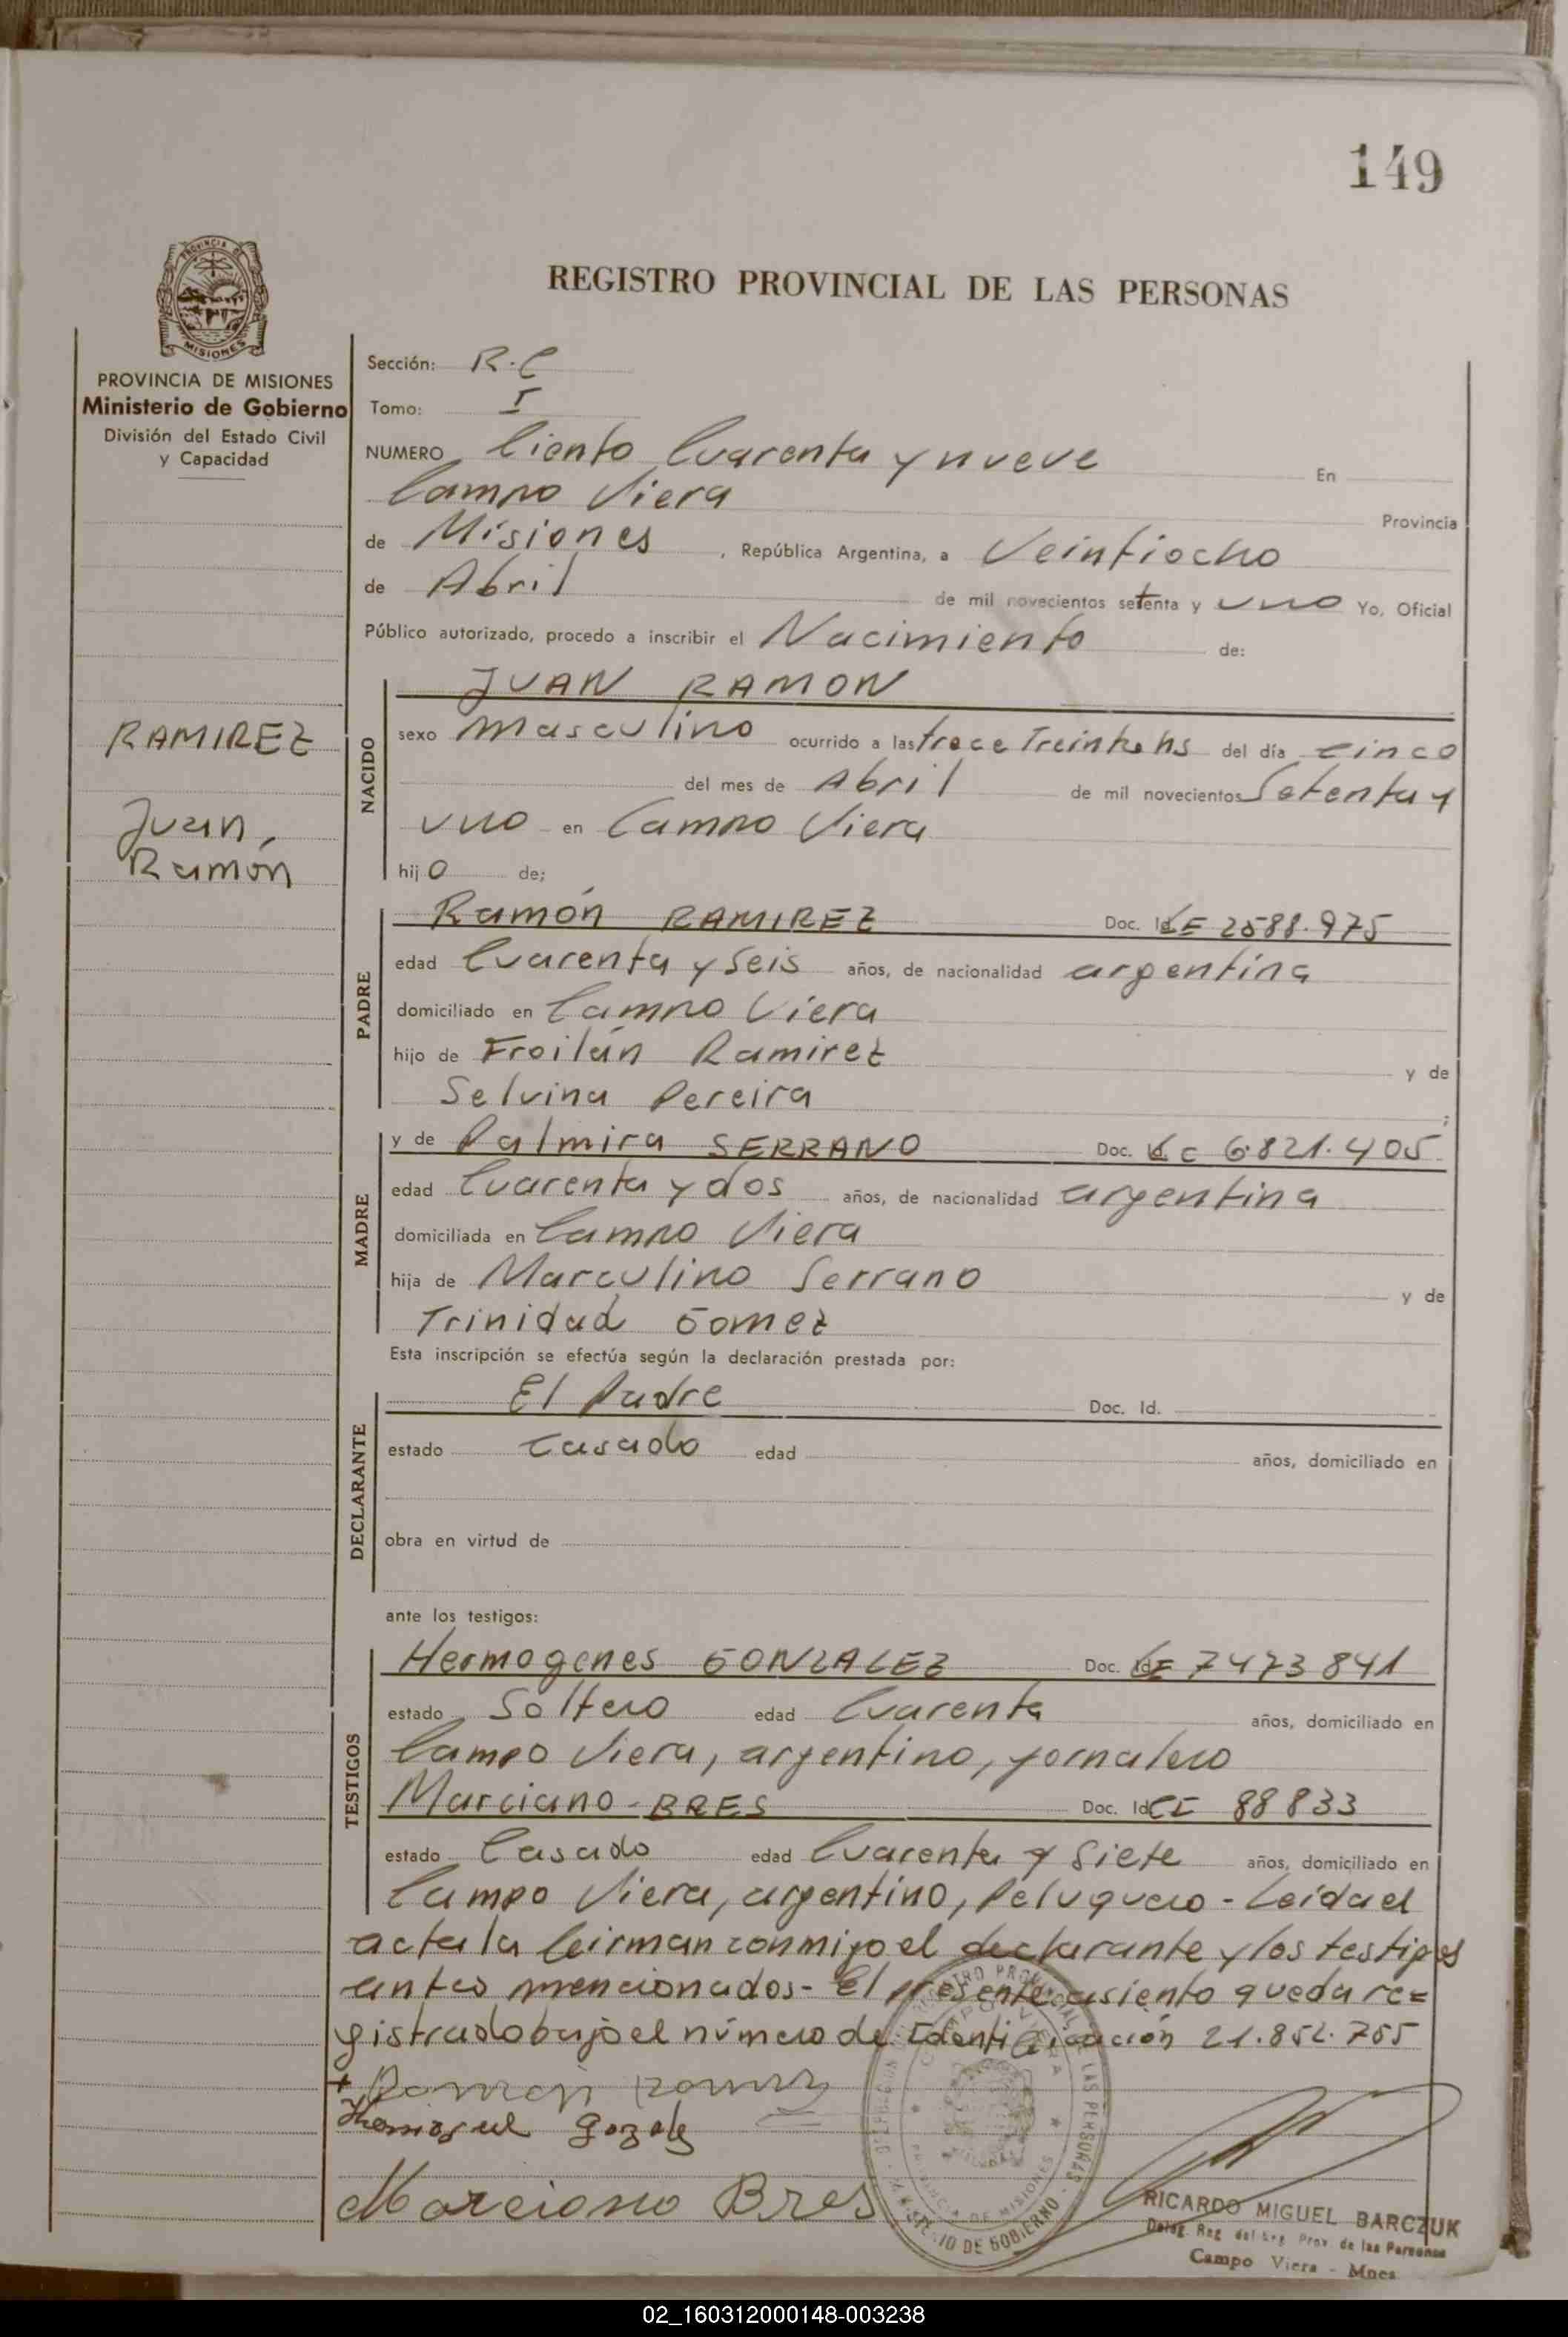 149
PROVINCIA DE
MISIONES
PROVINCIA DE MISIONES
Ministerio de Gobierno
División del Estado Civil
y Capacidad
RAMIREZ
Juan,
Ramón
REGISTRO PROVINCIAL DE LAS PERSONAS
Sección: R.C
Tomo: I
NUMERO Ciento Cuarenta y nueve En
Campo Viera Provincia
de Misiones, República Argentina, a Veintiocho
de Abril de mil novecientos setenta y uno Yo, Oficial
Público autorizado, procedo a inscribir el Nacimiento de:
NACIDO
JUAN RAMON
sexo masculino ocurrido a las trece Treinta hs del día cinco
del mes de Abril de mil novecientos Setenta y
uno en Campo Viera
hijo de;
PADRE
Ramón RAMIREZ Doc. Id. LE 2588.975
edad Cuarenta y Seis años, de nacionalidad argentina
domiciliado en Campo Viera
hijo de Froilán Ramirez y de
Selvina Pereira ;
MADRE
y de Palmira SERRANO Doc. LC 6.821.405
edad Cuarenta y dos años, de nacionalidad argentina
domiciliada en Campo Viera
hija de Marculino Serrano y de
Trinidad Gomez
Esta inscripción se efectúa según la declaración prestada por:
DECLARANTE
El Padre Doc. Id.
estado Casado edad años, domiciliado en
obra en virtud de
ante los testigos:
TESTIGOS
Hermogenes GONZALEZ Doc. Id. LE 7473841
estado Soltero edad Cuarenta años, domiciliado en
Campo Viera, argentino, jornalero
Marciano - BRES Doc. Id CI 88833
estado Casado edad Cuarenta y Siete años, domiciliado en
Campo Viera, argentino, Peluquero - Leida el
acta la firman conmigo el declarante y los testigos
antes mencionados - El presente asiento queda re=
gistrado bajo el número de Identificación 21.852.755
+ Ramon
Marciano Bres
CAMPO VIERA
PROVINCIA DE MISIONES
MINISTERIO DE GOBIERNO
RICARDO MIGUEL BARCZUK
Deleg. Reg. del Reg. Prov. de las Personas
Campo Viera - Mnes
02_160312000148-003238